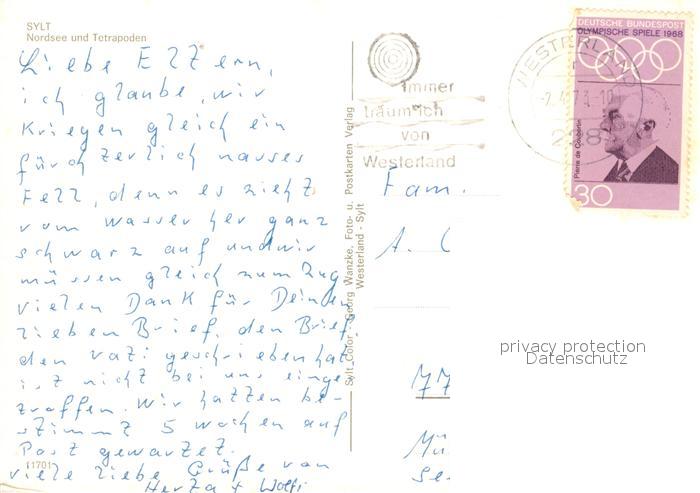 SYLT
Nordsee und Tetrapoden
Liebe Eltern,
ich glaube, wir
kriegen gleich ein
fürchterlich nasses
Fell, denn es zieht
vom Wasser her ganz
schwarz auf und wir
müssen gleich zum Zug
vielen Dank für Deinen
lieben Brief, den Brief,
den Vati geschrieben hat
ist nicht bei uns einge-
troffen. Wir hatten be-
stimmt 5 Wochen auf
Post gewartet.
viele liebe Grüße von
Herta + Wolfi
11701
Sylt Color, Georg Wanzke, Foto- u. Postkarten Verlag
Westerland - Sylt
Immer
träum ich
von
Westerland
WESTERLAND
228
DEUTSCHE BUNDESPOST
OLYMPISCHE SPIELE 1968
Pierre de Coubertin
30
Fam.
A.
77
Mü
privacy protection
Datenschutz